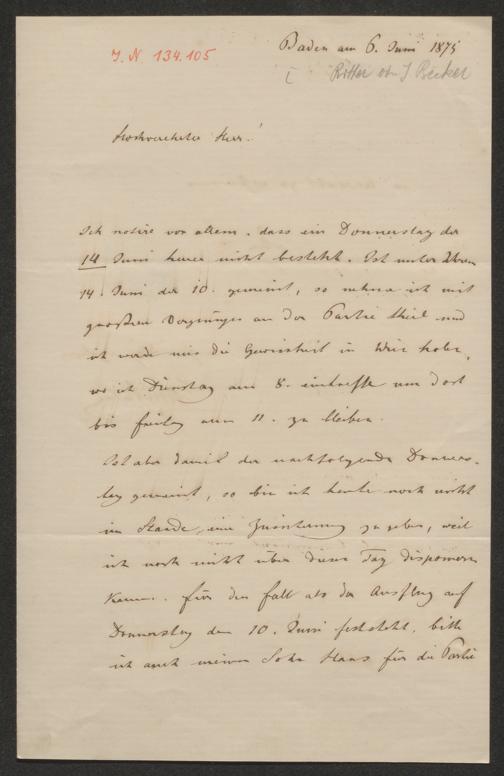 J. N. 134.105
Baden am 6. Juni 1875
Ritter
Hochverehrter Herr!
Ich notire vor allem, dass ein Donnerstag der
14 Juni heuer nicht besteht. Ist unter Ihrem
14. Juni der 10. gemeint, so nehme ich mit
grossem Vergnügen an der Partie theil und
ich werde mir die Gewissheit in Wien holen,
wo ich Dienstag am 8. eintreffe um dort
bis Freitag am 11. zu bleiben.
Ist aber damit der nachfolgende Donners-
tag gemeint, so bin ich heute noch nicht
im Stande, eine Zusicherung zu geben, weil
ich noch nicht über diesen Tag disponiren
kann. Für den Fall als der Ausflug auf
Donnerstag den 10. Juni feststeht, bitte
ich auch meinen Sohn Hans für die Partie